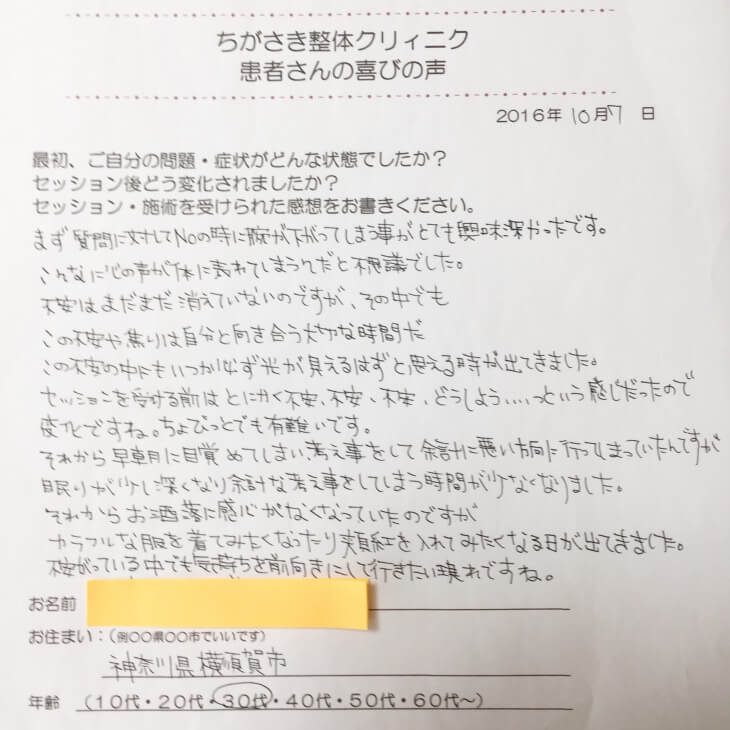 ちがさき整体クリィニク
患者さんの喜びの声
2016年 10月 7 日
最初、ご自分の問題・症状がどんな状態でしたか？
セッション後どう変化されましたか？
セッション・施術を受けられた感想をお書きください。
まず質問に対してNoの時に腕が下がってしまう事がとても興味深かったです。
こんなに心の声が体に表れてしまうんだと不思議でした。
不安はまだまだ消えていないのですが、その中でも
この不安や焦りは自分と向き合う大切な時間だ
この不安の中にもいつか必ず光が見えるはずと思える時が出てきました。
セッションを受ける前はとにかく不安、不安、不安、どうしよう、、、、っという感じだったので
変化ですね。ちょびっとでも有難いです。
それから早朝に目覚めてしまい考え事をして余計に悪い方向に行ってしまっていたんですが
眠りが少し深くなり余計な考え事をしてしまう時間が少なくなりました。
それからお洒落に感心がなくなっていたのですが
カラフルな服を着てみたくなったり頬紅を入れてみたくなる日が出てきました。
不安がっている中でも気持ちを前向きにして行きたい現れですね。
お名前
お住まい：（例〇〇県〇〇市でいいです）
神奈川県横須賀市
年齢 （10代・20代・30代・40代・50代・60代〜）